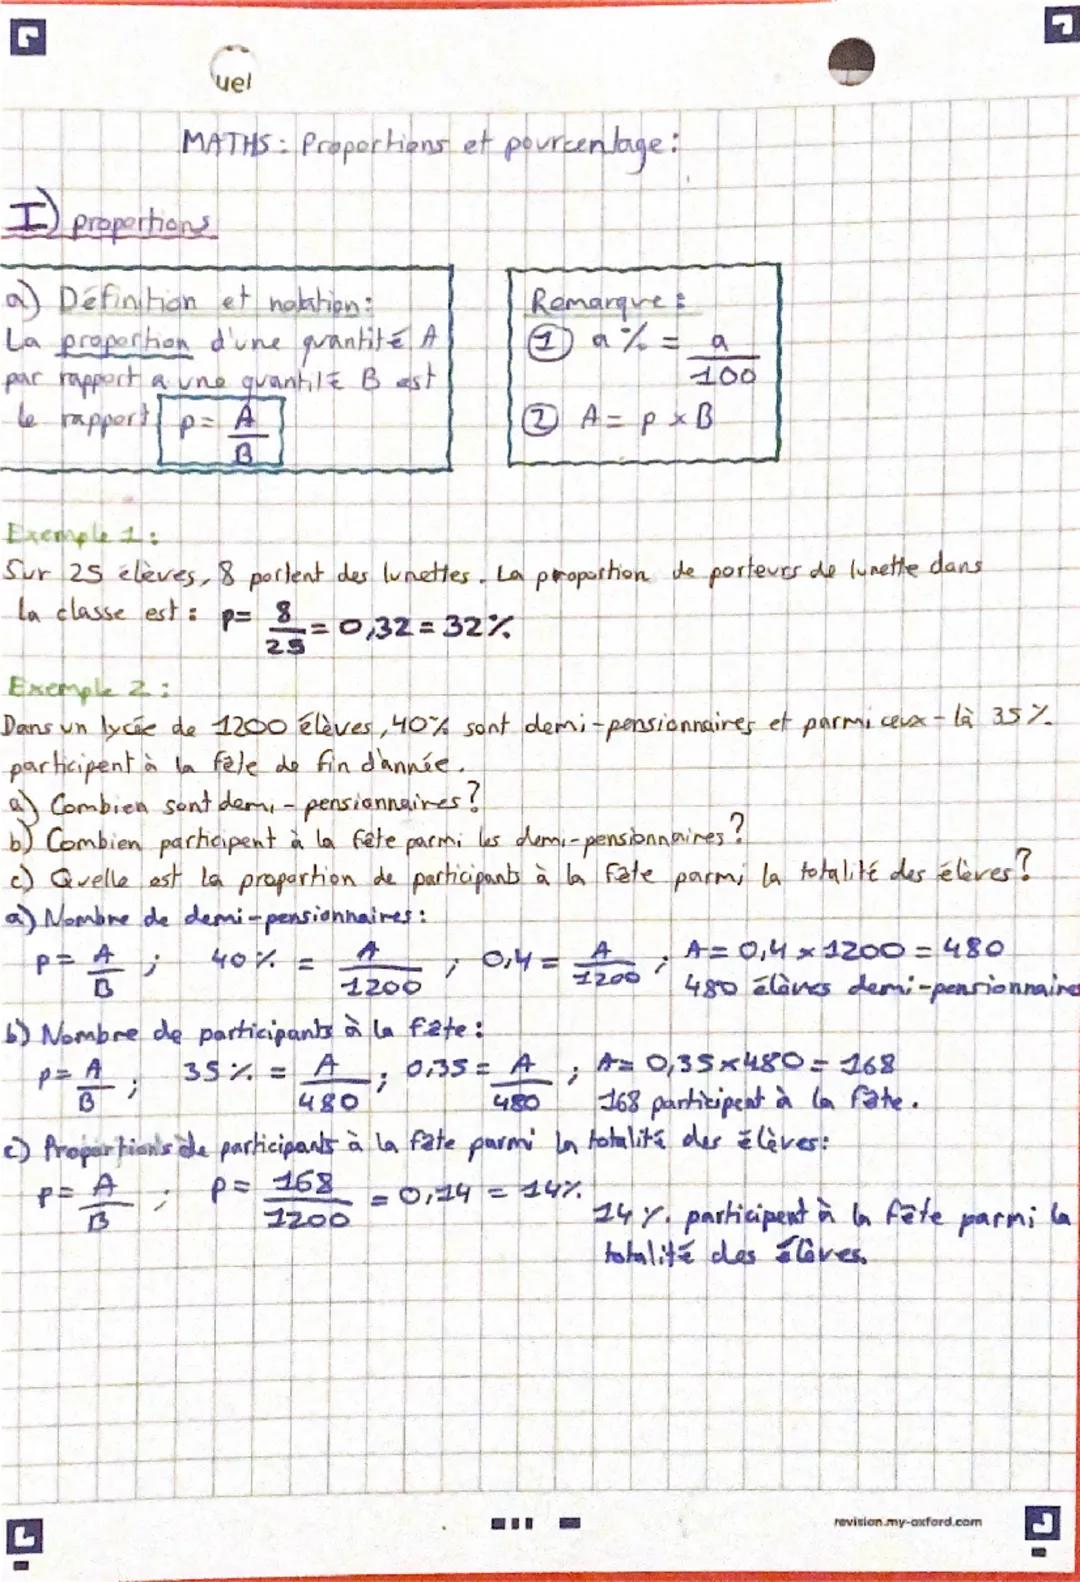 uel
MATHS : Proportions et pourcentage :
I) proportions
a) Définition et notation :
La proportion d'une quantité A
par rapport a une quantité B est
le rapport p = A/B
Remarque :
① a % = a/100
② A = p x B
Exemple 1 :
Sur 25 élèves, 8 portent des lunettes. La proportion de porteurs de lunette dans
la classe est : p = 8/25 = 0,32 = 32%
Exemple 2 :
Dans un lycée de 1200 élèves, 40% sont demi-pensionnaires et parmi ceux-là 35%
participent à la fête de fin d'année.
a) Combien sont demi-pensionnaires ?
b) Combien participent à la fête parmi les demi-pensionnaires ?
c) Quelle est la proportion de participants à la fête parmi la totalité des élèves ?
a) Nombre de demi-pensionnaires :
p = A/B ; 40% = A/1200 ; 0,4 = A/1200 ; A = 0,4 x 1200 = 480
480 élèves demi-pensionnaires
b) Nombre de participants à la fête :
p = A/B ; 35% = A/480 ; 0,35 = A/480 ; A = 0,35 x 480 = 168
168 participent à la fête.
c) Proportions de participants à la fête parmi la totalité des élèves :
p = A/B ; p = 168/1200 = 0,14 = 14%
14% participent à la fête parmi la
totalité des élèves.
revision.my-oxford.com